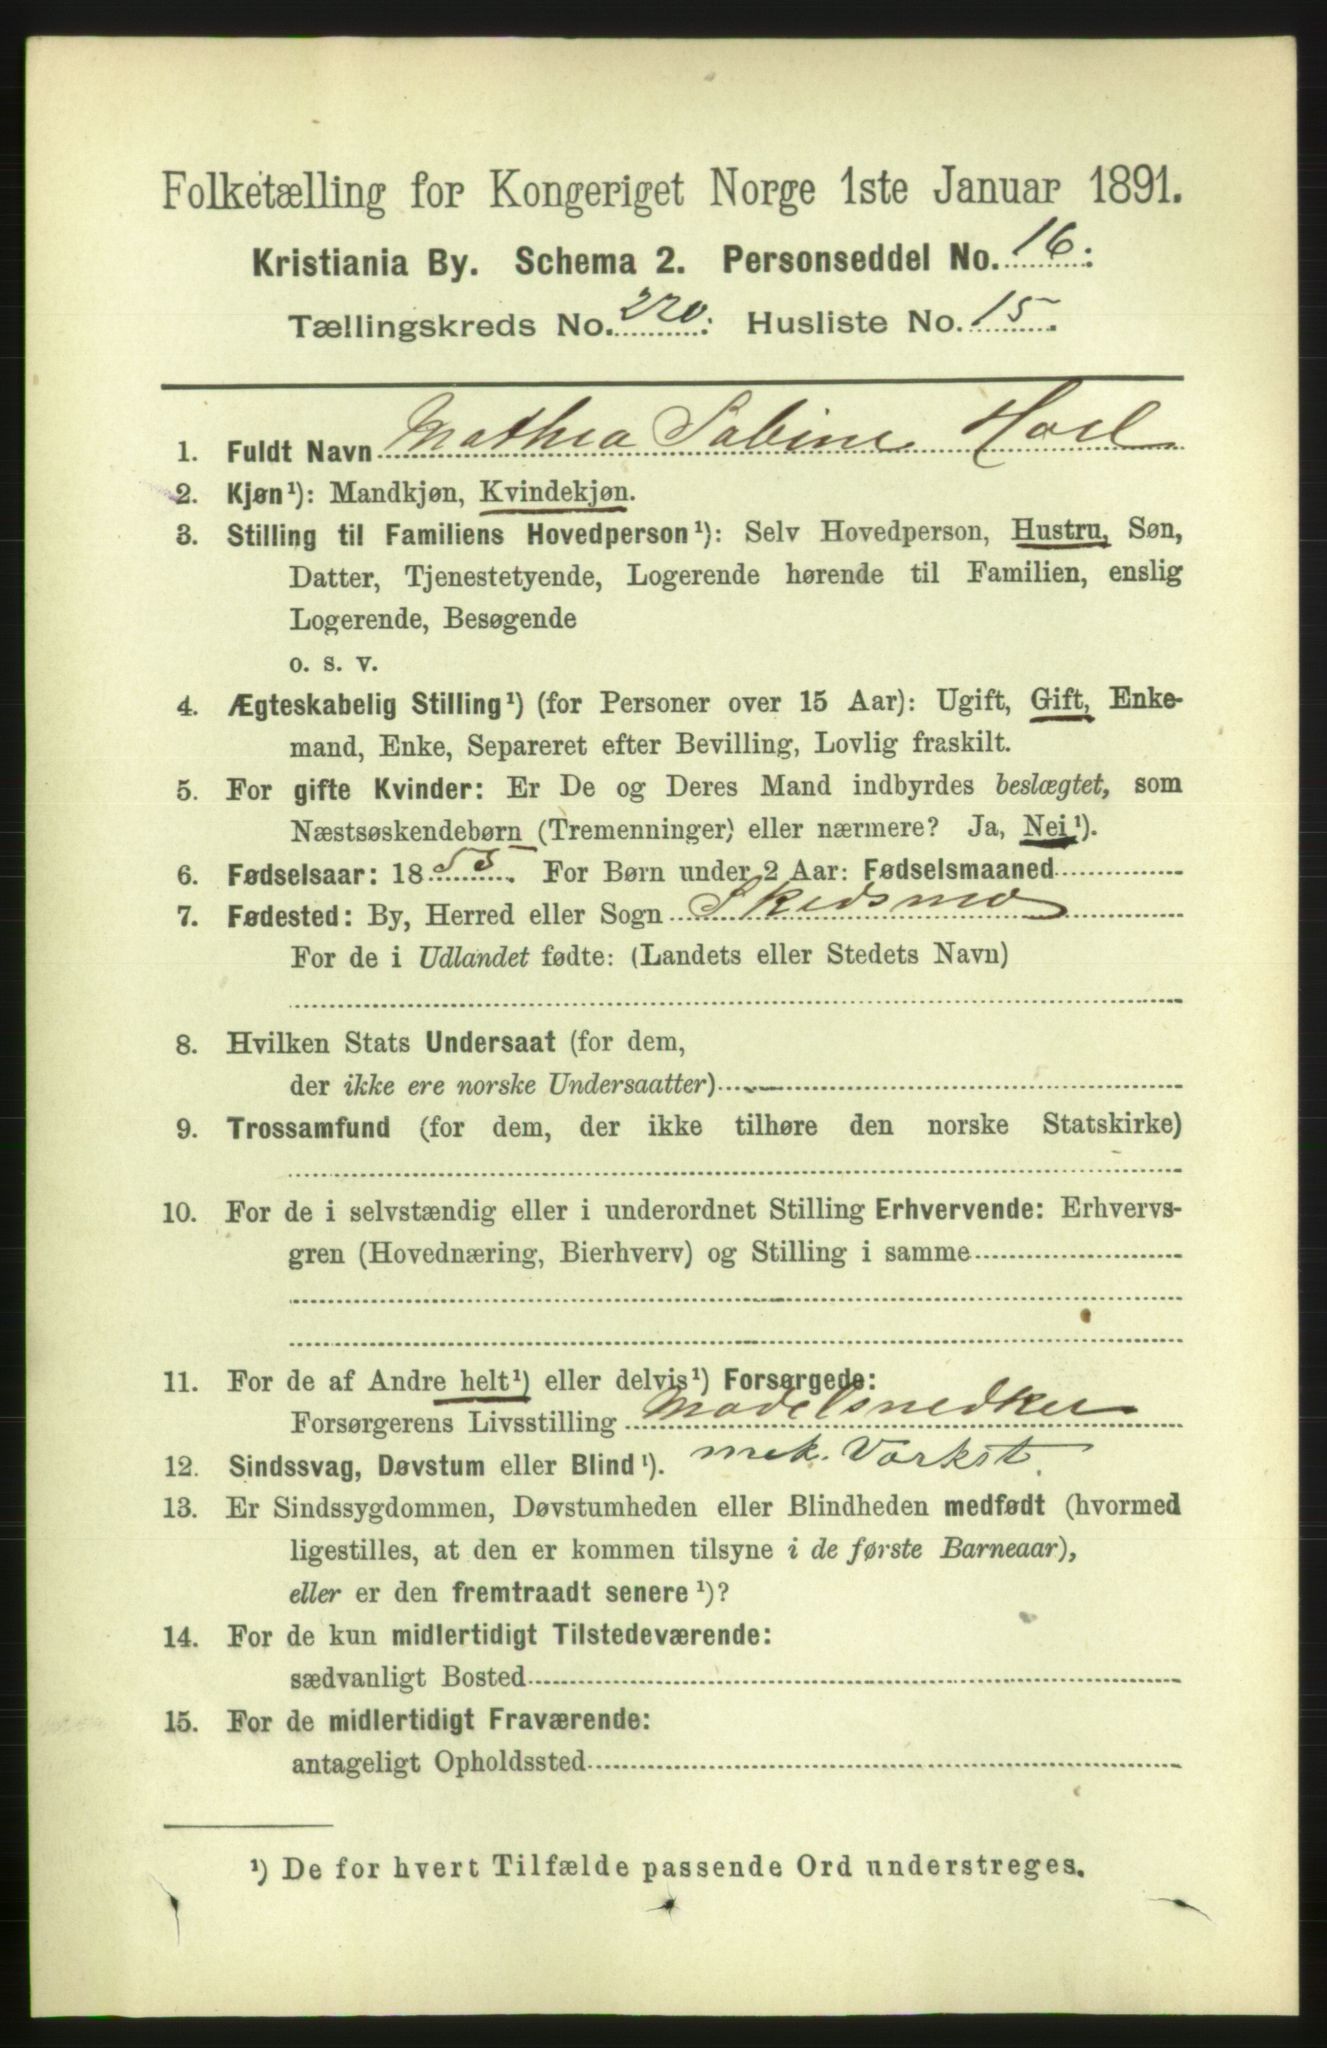 Folketælling for Kongeriget Norge 1ste Januar 1891.
Kristiania By. Schema 2. Personseddel No. 16.
Tællingskreds No. 220. Husliste No. 15.
1. Fuldt Navn Mathea Sabine Hoel
2. Kjøn¹): Mandkjøn, Kvindekjøn.
3. Stilling til Familiens Hovedperson¹): Selv Hovedperson, Hustru, Søn,
Datter, Tjenestetyende, Logerende hørende til Familien, enslig
Logerende, Besøgende
o. s. v.
4. Ægteskabelig Stilling¹) (for Personer over 15 Aar): Ugift, Gift, Enke-
mand, Enke, Separeret efter Bevilling, Lovlig fraskilt.
5. For gifte Kvinder: Er De og Deres Mand indbyrdes beslægtet, som
Næstsøskendebørn (Tremenninger) eller nærmere? Ja, Nei¹).
6. Fødselsaar: 1855. For Børn under 2 Aar: Fødselsmaaned
7. Fødested: By, Herred eller Sogn Skedsmo
For de i Udlandet fødte: (Landets eller Stedets Navn)
8. Hvilken Stats Undersaat (for dem,
der ikke ere norske Undersaatter)
9. Trossamfund (for dem, der ikke tilhøre den norske Statskirke)
10. For de i selvstændig eller i underordnet Stilling Erhvervende: Erhvervs-
gren (Hovednæring, Bierhverv) og Stilling i samme
11. For de af Andre helt¹) eller delvis¹) Forsørgede:
Forsørgerens Livsstilling Modelsnedker
12. Sindssvag, Døvstum eller Blind¹). mek. Værkst.
13. Er Sindssygdommen, Døvstumheden eller Blindheden medfødt (hvormed
ligestilles, at den er kommen tilsyne i de første Barneaar),
eller er den fremtraadt senere¹)?
14. For de kun midlertidigt Tilstedeværende:
sædvanligt Bosted
15. For de midlertidigt Fraværende:
antageligt Opholdssted
¹) De for hvert Tilfælde passende Ord understreges.